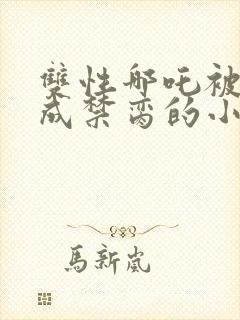 雙性哪吒被
成禁脔的小
馬新嵐